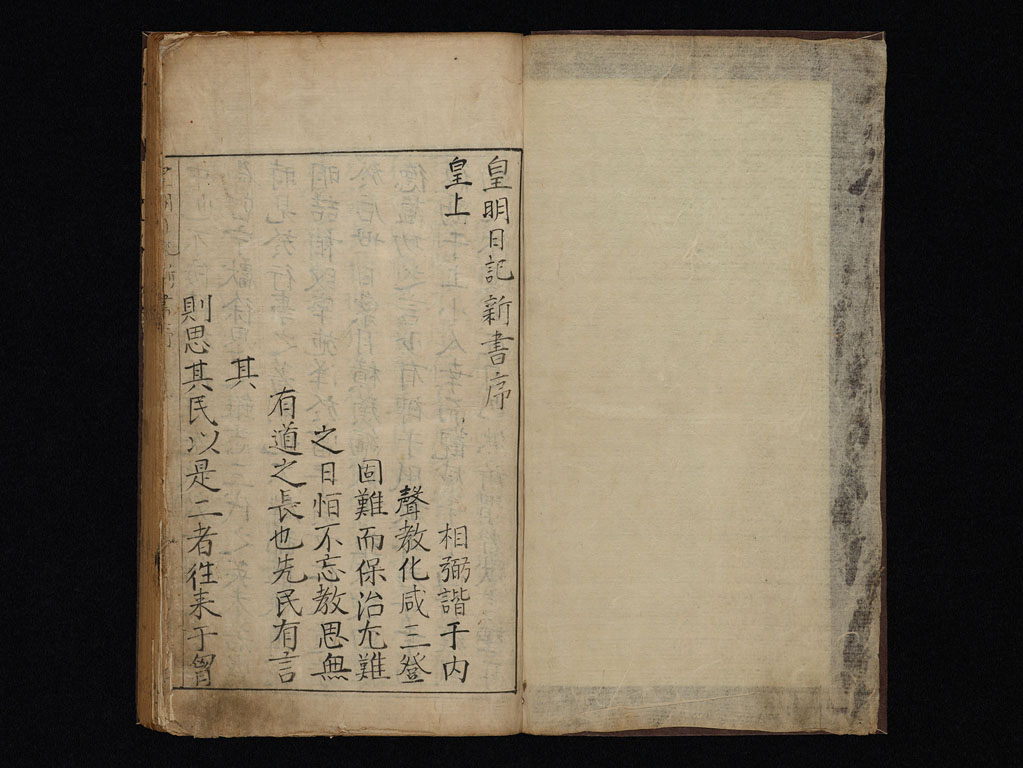 皇明日記新書序
皇上 相弼諧于内
聲教化咸三登
固難而保治尤難
之日怕不忘教思無
有道之長也先民有言
其
則思其民以是二者徃来于胷